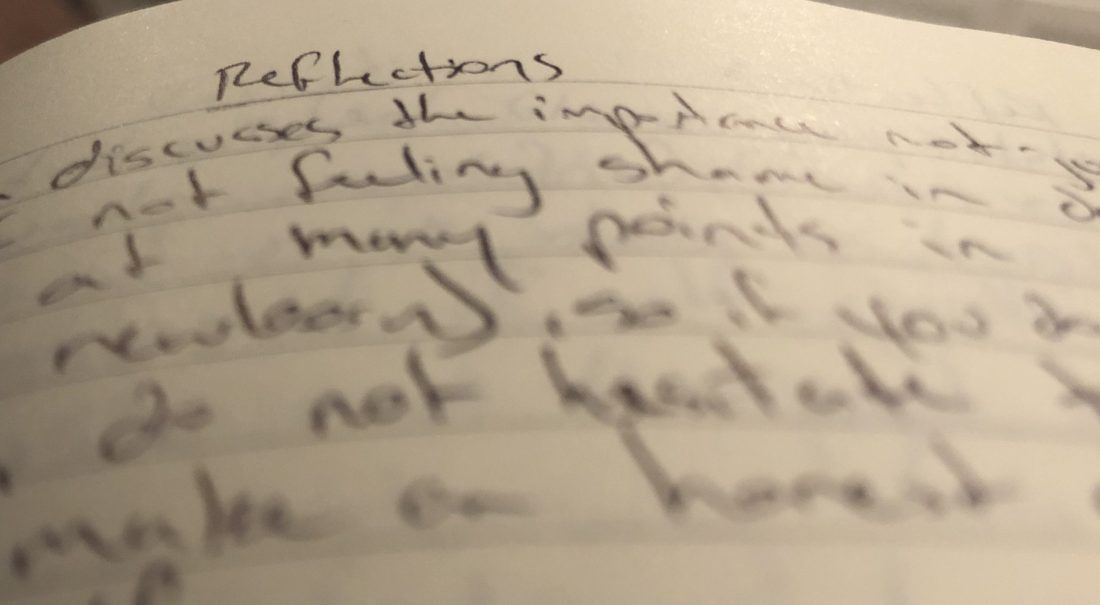 Reflections
discusses the importance not
not feeling shame in
at many points in
so if you
do not hesitate
make an honest